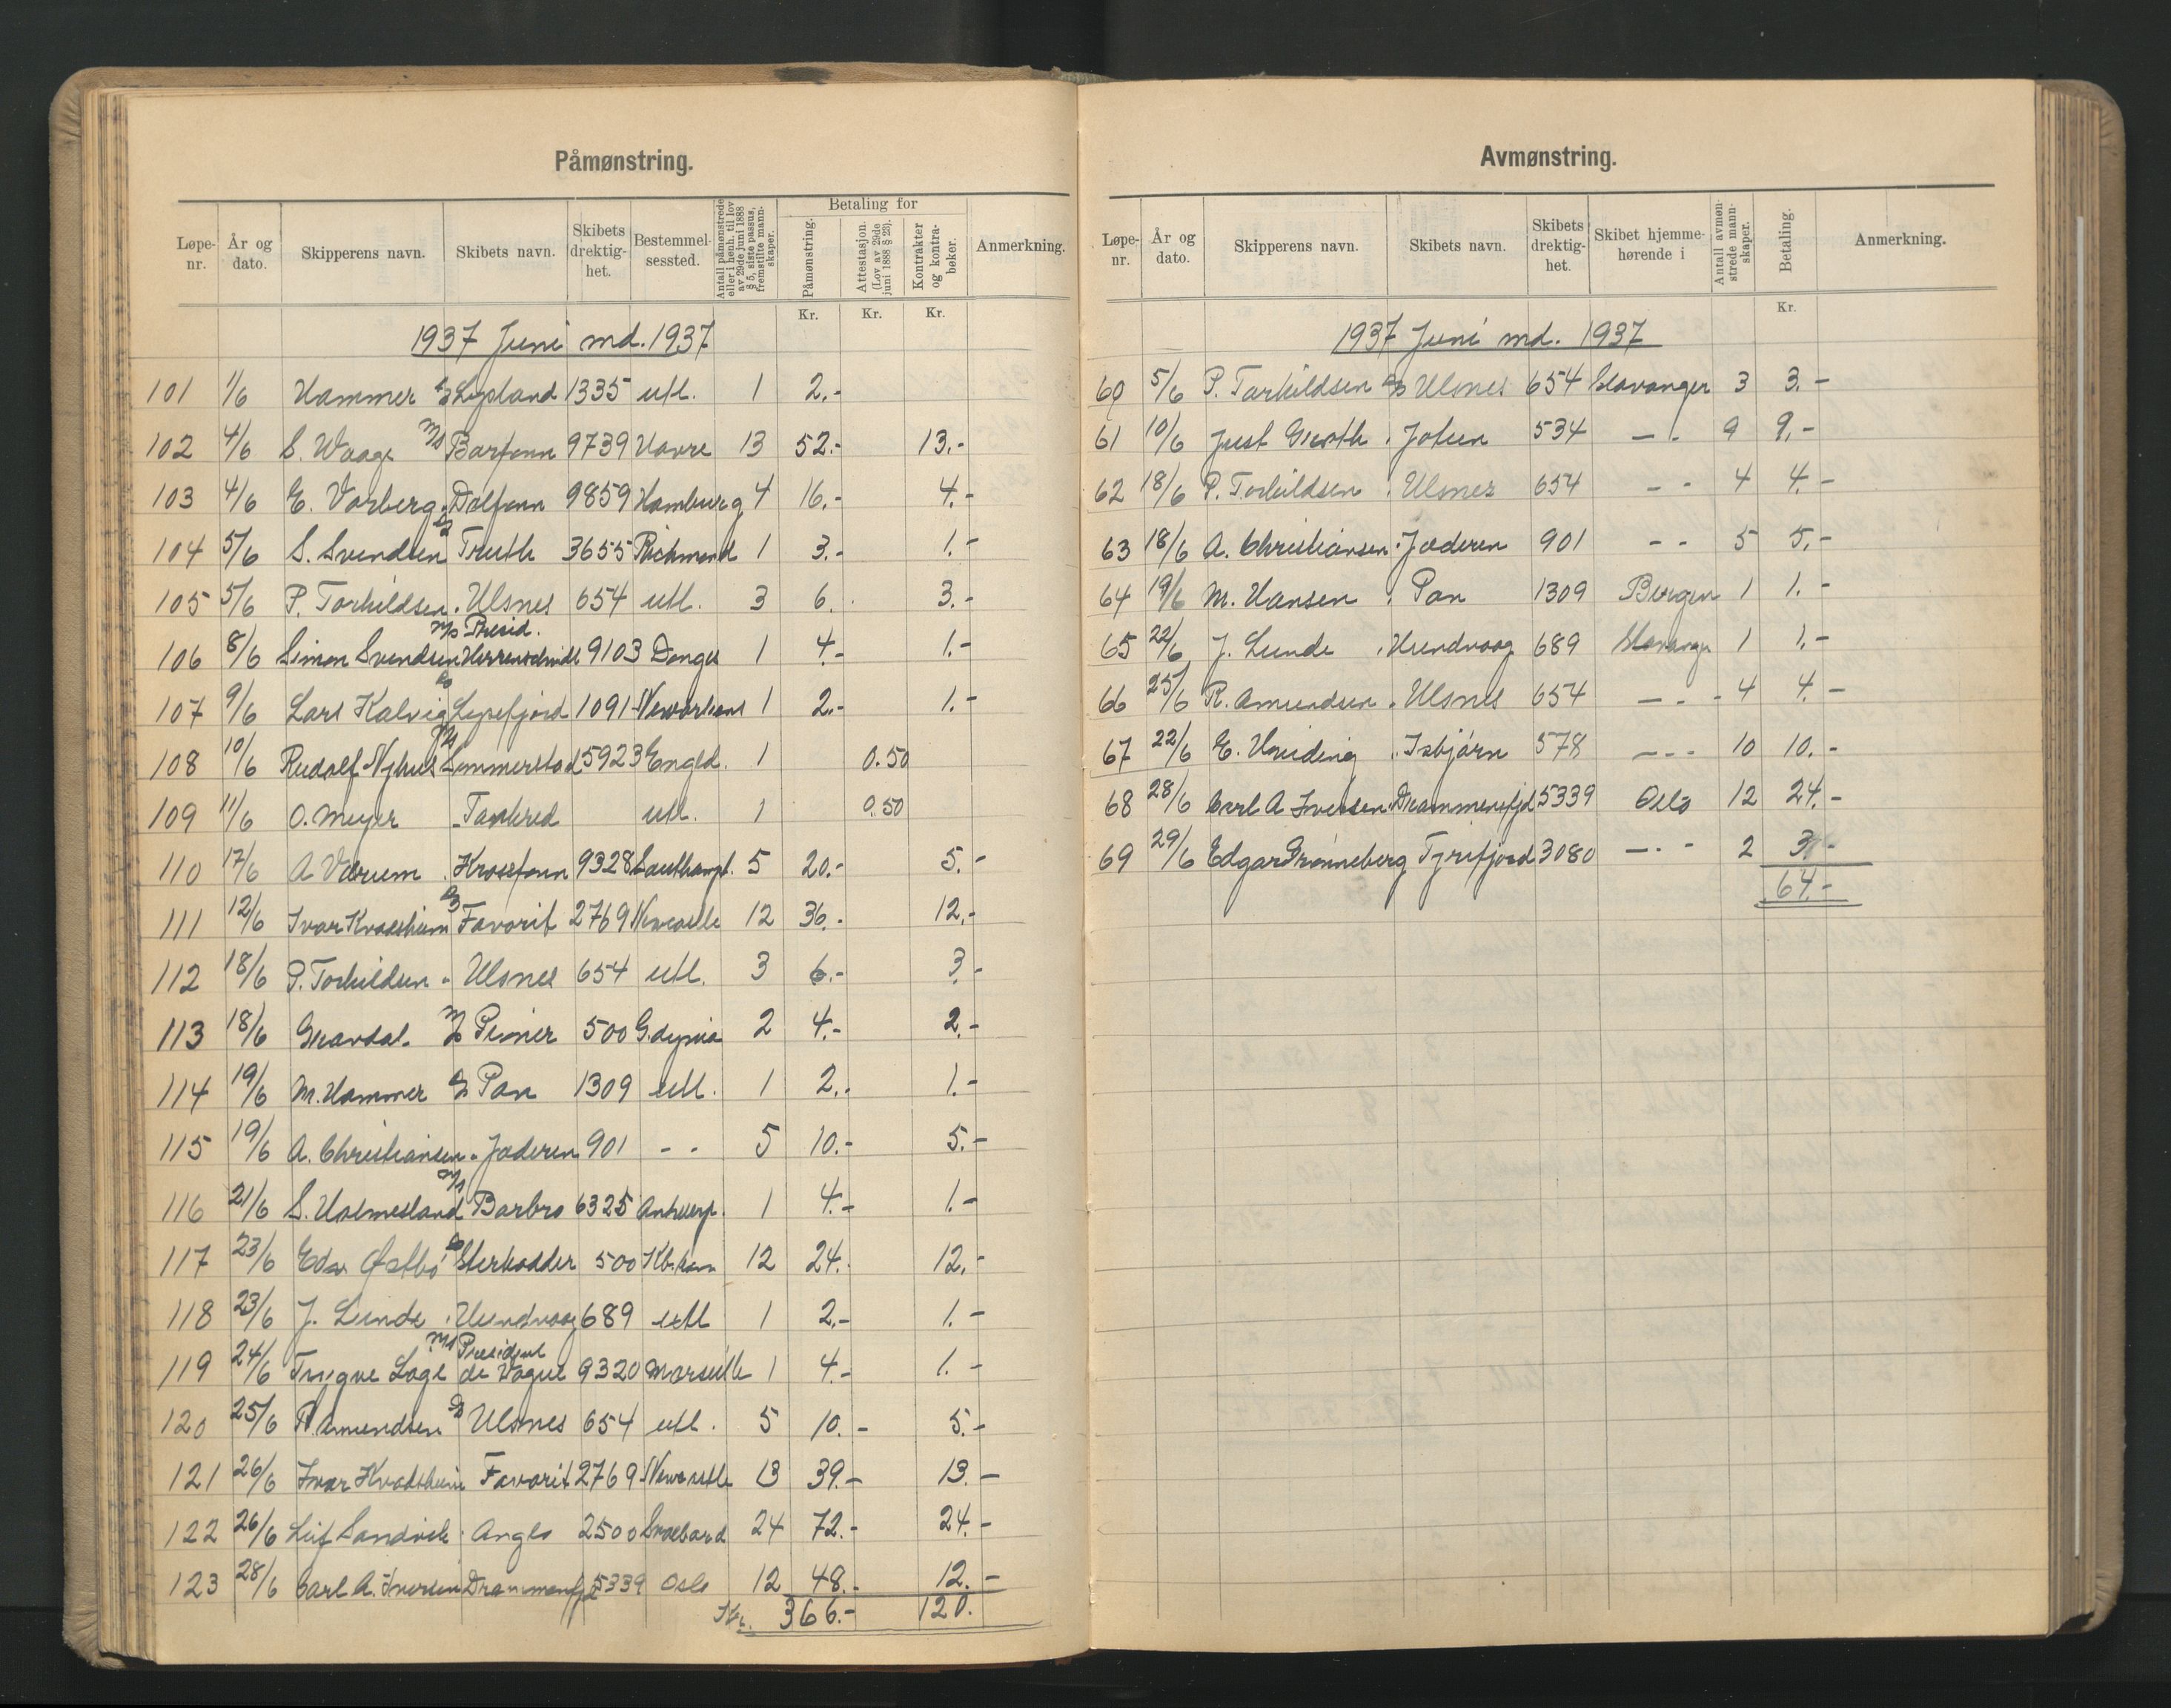 Påmønstring.
Løpe-nr. År og dato. Skipperens navn. Skibets navn. Skibets drektig-het. Bestemmel-sessted. Antall påmønstrede eller i henh. til lov av 29de juni 1888 § 5, siste passus, fremstilte mann-skaper. Betaling for Påmønstring. Attestasjon. (Lov av 29de juni 1888 § 23). Kontrakter og kontra-bøker. Anmerkning.
Kr. Kr. Kr.
1937 Juni md. 1937
101 1/6 Hammer D/S Lysland 1335 utl. 1 2.-
102 4/6 S. Waage M/S Barfonn 9739 Havre 13 52.- 13.-
103 4/6 E. Vorberg " Dalfonn 9859 Hamburg 4 16.- 4.-
104 5/6 S. Svendsen D/S Truth 3655 Richmond 1 3.- 1.-
105 5/6 P. Torkildsen " Ulsnes 654 utl. 3 6. 3.-
106 8/6 Simon Svendsen M/S Presid. Herrenschmidt 9103 Donges 1 4.- 1.-
107 9/6 Lars Kalvig D/S Lysefjord 1091 1 2.- 1.-
108 10/6 Rudolf Nyhus Simmerstad 5923 Engld. 1 0.50
109 11/6 O. Meyer Tankred utl. 1 0.50
110 17/6 A Værum " Krossfonn 9328 Southampt. 5 20.- 5.-
111 12/6 Ivar Kvadsheim D/S Favorit 2769 Newcastle 12 36.- 12.-
112 18/6 P. Torkildsen " Ulsnes 654 utl. 3 6.- 3.-
113 18/6 Gravdal. M/S Pioner 500 Gdynia 2 4.- 2.-
114 19/6 M. Hammer D/S Pan 1309 utl. 1 2.- 1.-
115 19/6 A. Christiansen " Jæderen 901 - - 5 10.- 5.-
116 21/6 S. Holmesland M/S Barbro 6325 Antwerp. 1 4.- 1.-
117 23/6 Edv Østbø D/S Sterkodder 500 Kb.havn 12 24. 12.-
118 23/6 J. Lunde " Hundvaag 689 utl 1 2.- 1.-
119 24/6 Trygve Lage M/S President de Vogue 9320 Marseille 1 4.- 1.-
120 25/6 R Amundsen D/S Ulsnes 654 utl. 5 10.- 5.-
121 26/6 Ivar Kvadsheim Favorit 2769 Newcastle 13 39.- 13.-
122 26/6 Leif Sandvik " Anglo 2500 Svalbard 24 72.- 24.-
123 28/6 Carl A. Iversen Drammensfjd 5339 Oslo 12 48.- 12.-
Kr. 366.- 120.
Avmønstring.
Løpe-nr. År og dato. Skipperens navn. Skibets navn. Skibets drektig-het. Skibet hjemme-hørende i Antall avmøn-strede mann-skaper. Betaling. Anmerkning.
Kr.
1937 Juni md. 1937
60 5/6 P. Torkildsen D/S Ulsnes 654 Stavanger 3 3.-
61 10/6 Just Groth " Jotun 534 - " - 9 9.-
62 18/6 P. Torkildsen " Ulsnes 654 - " - 4 4.-
63 18/6 A. Christiansen " Jæderen 901 - - 5 5.-
64 19/6 M. Hansen " Pan 1309 Bergen 1 1.-
65 22/6 J. Lunde " Hundvaag 689 Stavanger 1 1.-
66 25/6 R. Amundsen " Ulsnes 654 - " - 4 4.-
67 22/6 E. " Isbjørn 578 - " - 10 10.-
68 28/6 Carl A Iversen " Drammensfjd 5339 Oslo 12 24.-
69 29/6 Edgar Grønneberg Tyrifjord 3080 - " - 2 3.-
64.-